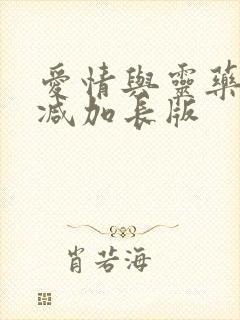 愛情與靈藥
减加長版
肖若海